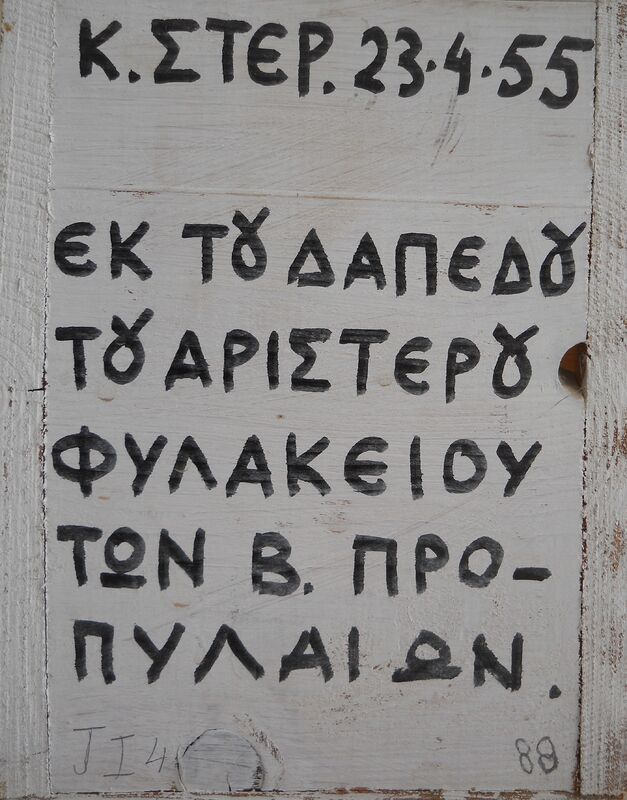 Κ. ΣΤΕΡ. 23.4.55
ΕΚ ΤȢ ΔΑΠΕΔȢ
ΤȢ ΑΡΙΣΤΕΡȢ
ΦΥΛΑΚΕΙΟΥ
ΤΩΝ Β. ΠΡΟ-
ΠΥΛΑΙΩΝ.
JI4 88